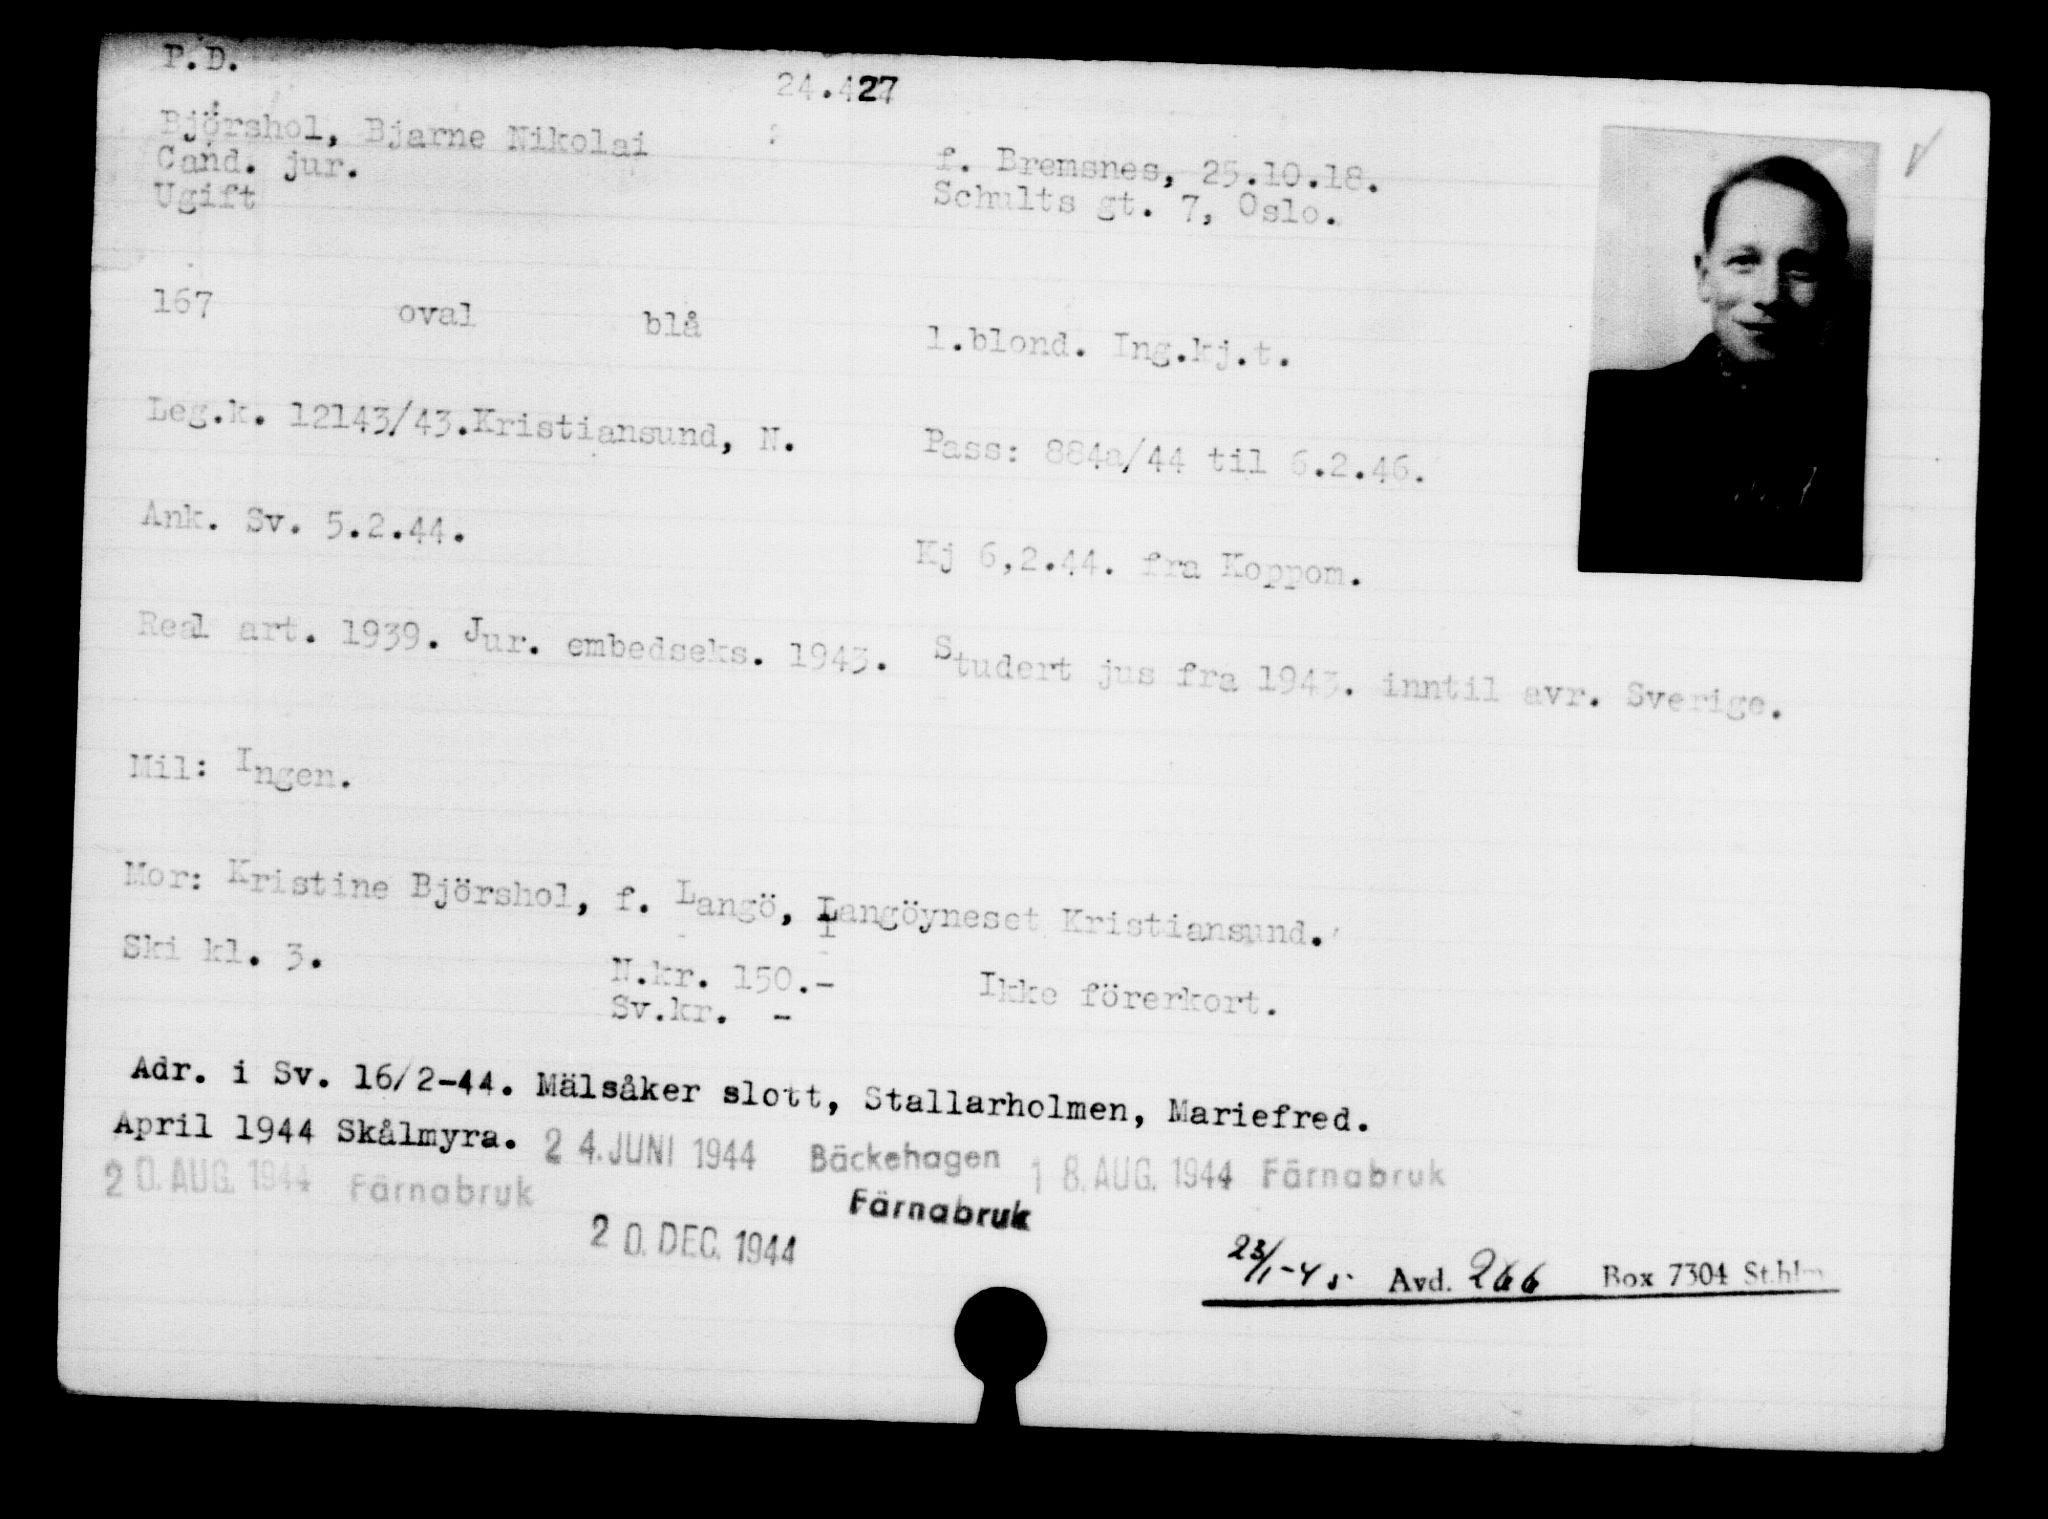 P.D.
24.427
Björshol, Bjarne Nikolai
f. Bremsnes, 25.10.18.
Cand. jur.
Schults gt. 7, Oslo.
Ugift
167 oval blå l.blond. Ing.kj.t.
Leg.k. 12143/43.Kristiansund, N. Pass: 884a/44 til 6.2.46.
Ank. Sv. 5.2.44. Kj 6,2.44. fra Koppom.
Real art. 1939. Jur. embedseks. 1943. Studert jus fra 1943. inntil avr. Sverige.
Mil: Ingen.
Mor: Kristine Björshol, f. Langö, Langöyneset Kristiansund.
Ski kl. 3. N.kr. 150.- Ikke förerkort.
Sv.kr. -
Adr. i Sv. 16/2-44. Mälsåker slott, Stallarholmen, Mariefred.
April 1944 Skålmyra. 24. JUNI 1944 Bäckehagen 18. AUG. 1944 Färnabruk
20. AUG. 1944 Färnabruk Färnabruk
20. DEC. 1944
23/1-45 Avd. 266 Box 7304 St.hlm